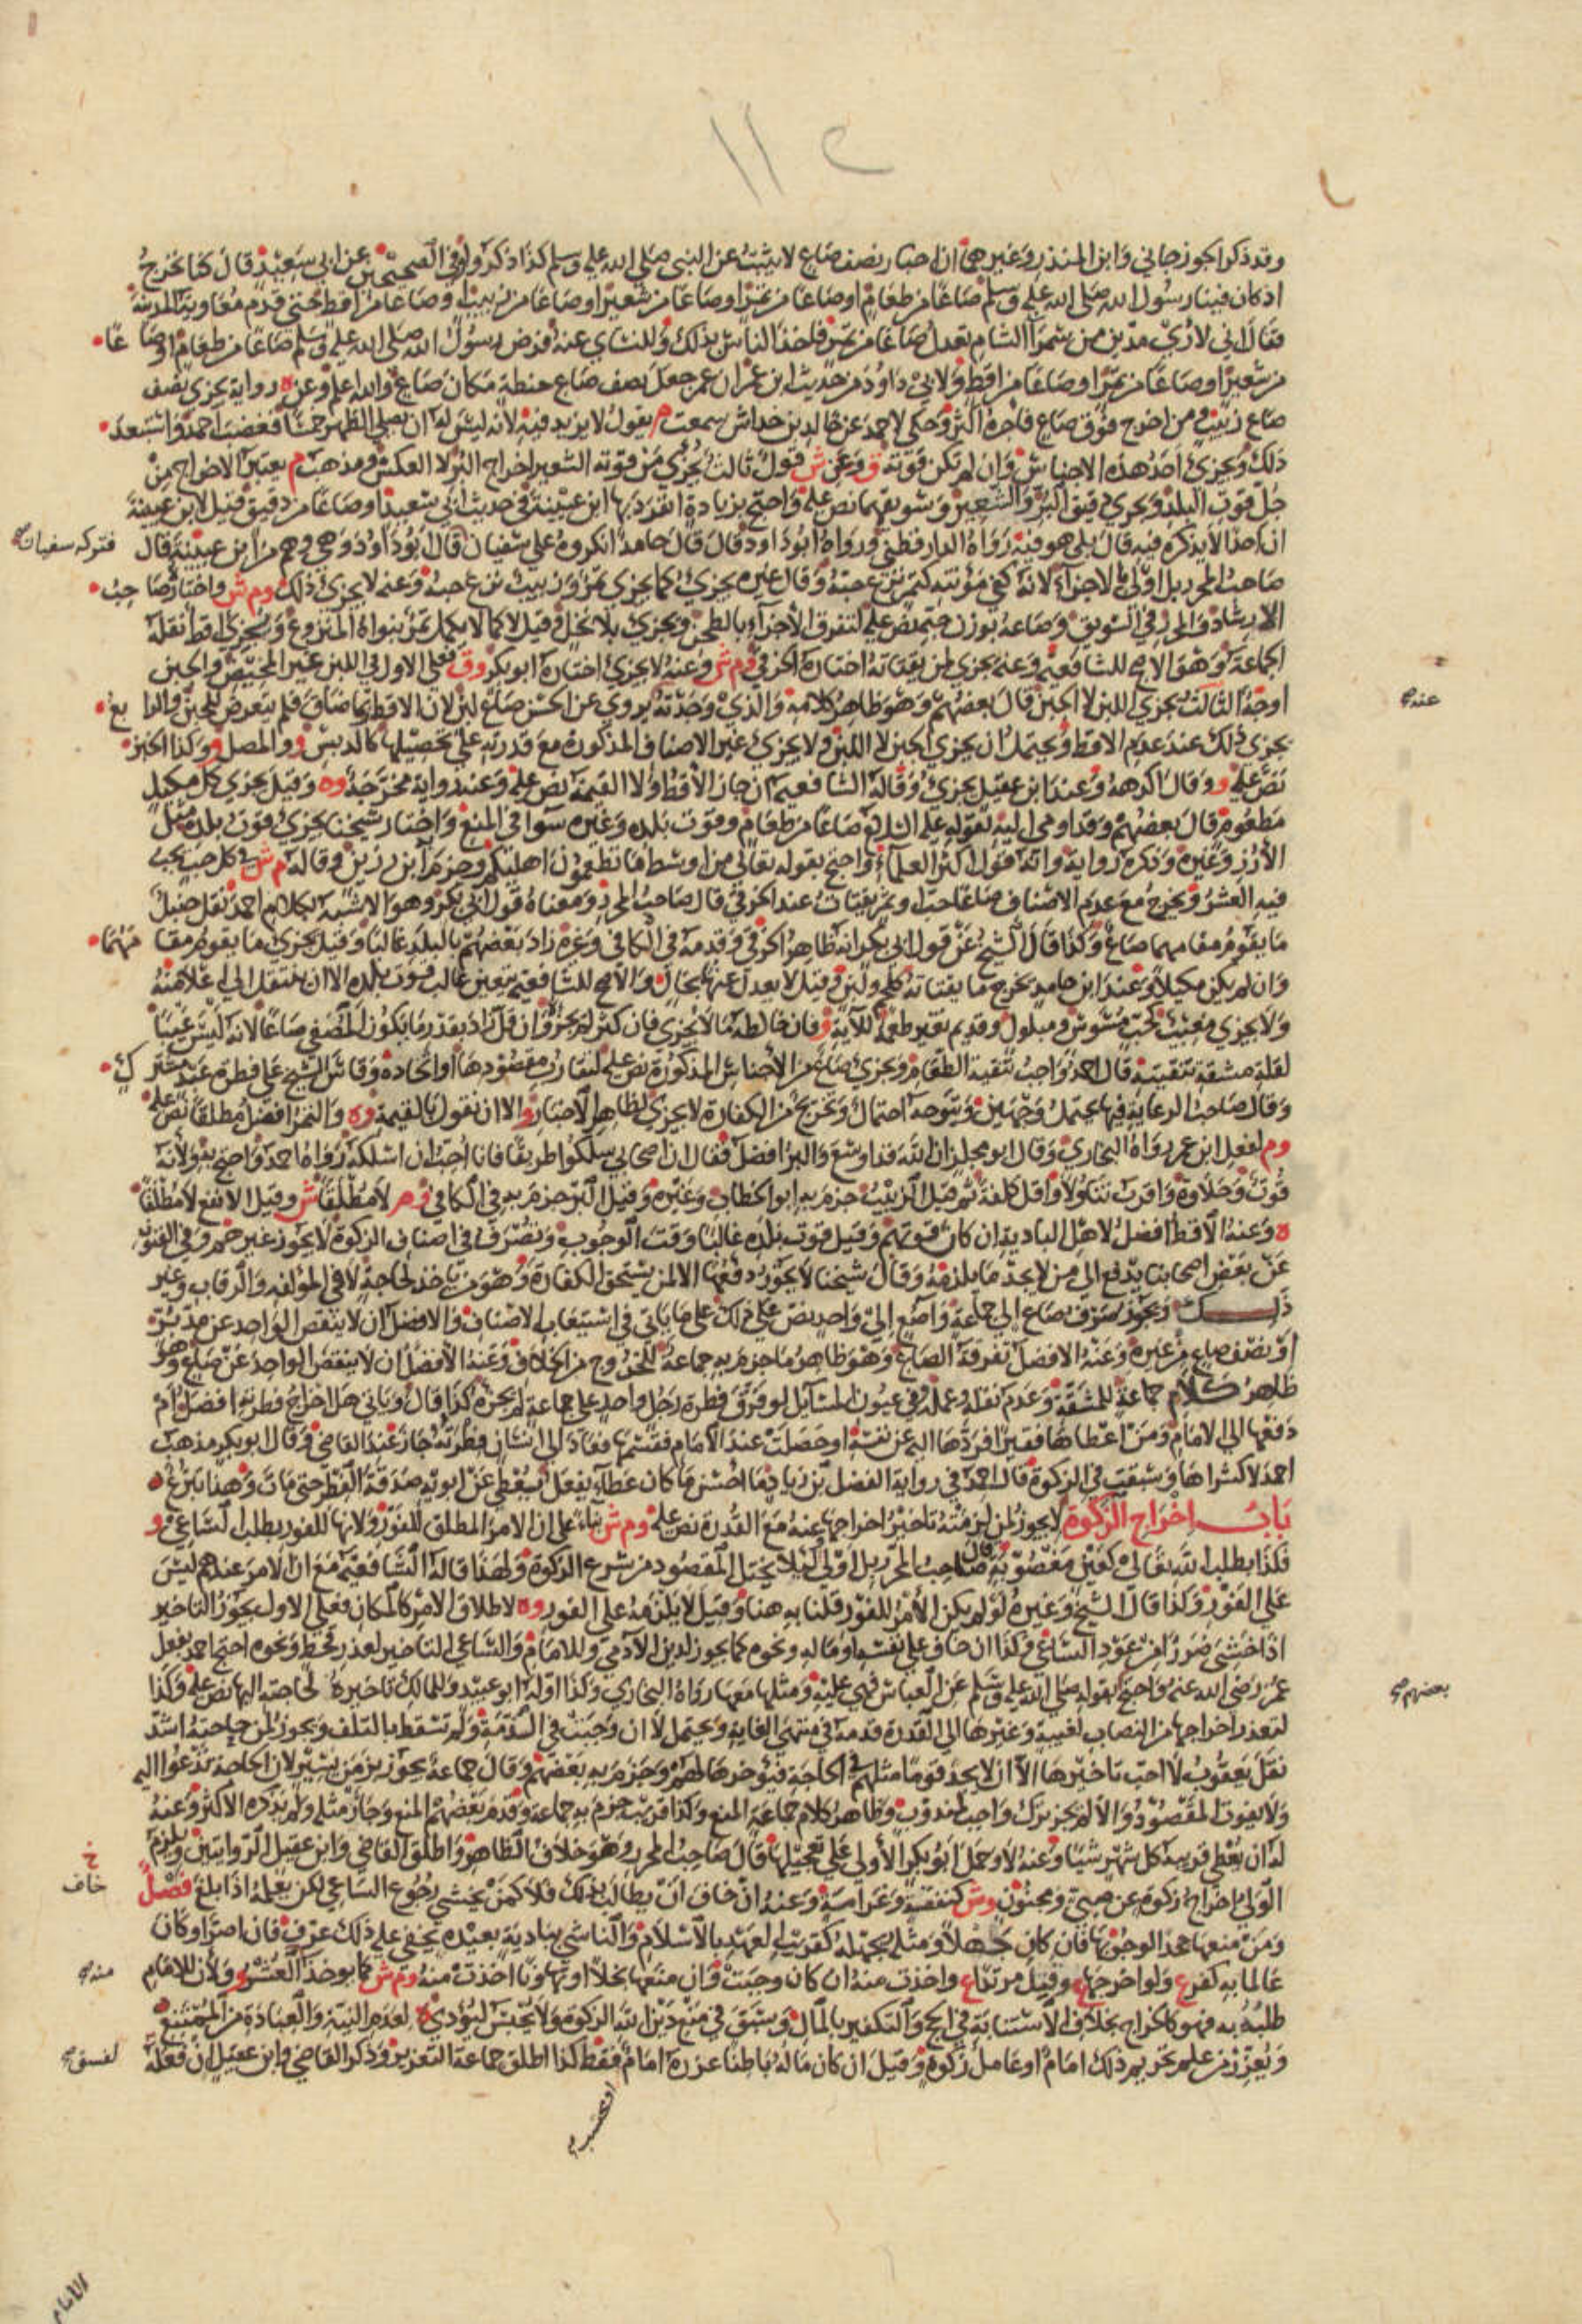 ١١٢
وقد ذكر الجوزجاني وابن المنذر وغيرهما ان اخبار نصف صاع لا يثبت عن النبي صلى الله عليه وسلم كذا ذكروا وفي الصحيحين عن ابي سعيد قال كنا نخرج
اذ كان فينا رسول الله صلى الله عليه وسلم صاعا من طعام او صاعا من تمر او صاعا من شعير او صاعا من زبيب او صاعا من اقط حتى قدم معاوية المدينة
فقال اني لارى مدين من سمرا الشام تعدل صاعا من تمر فاخذ الناس بذلك وللنساي عنه فرض رسول الله صلى الله عليه وسلم صاعا من طعام او صاعا
من شعير او صاعا من تمر او صاعا من اقط ولابي داود من حديث ابن عمر ان عمر جعل نصف صاع حنطة مكان صاع والله اعلم وعن ه رواية يجزي نصف
صاع زبيب ومن اخرج فوق صاع فاجره اكثر وحكي لاحمد عن خالد بن خداش سمعت م يقول لا يزيد فيه لانه ليس له ان يصلي الظهر خمسا فغضب احمد واستبعد
ذلك ويجزي احد هذه الاجناس وان لم تكن قوته ق وعن ش قول ثالث يجزي من قوته الشعير اخراج البر لا العكس ومذهب م يعتبر الاخراج من
جل قوت البلد ويجزي دقيق البر والشعير وسويقهما نص عليه واحتج بزيادة انفرد بها ابن عيينة في حديث ابي سعيد او صاعا من دقيق قيل لابن عيينة
ان احدا لا يذكره فيه قال بلى هو فيه رواه الدارقطني ورواه ابو داود قال قال حامد انكروه على سفيان قال ابو داود وهي وهم من ابن عيينة قال
فتركه سفيان صح
صاحب المحرر بل اولى بالاجزاء لانه كفي مؤنته كتمر نزع حبه وقال غيره يجزي كما يجزي تمر وزبيب نزع حبه وعنه لا يجزي ذلك وم ش واختار صاحب
الارشاد والمحرر في السويق وصاعه بوزن حبه نص عليه لتفرق الاجزاء بالطحن ويجزي بلا نخل وقيل لا كما لا يكمل تمر بنواه المنزوع ويجزي اقط نقله
الجماعة وهو الاصح للشافعية وعنه يجزي من يقتاته اختاره الخرقي وم ش وعنه لا يجزي اختاره ابو بكر وق فعلى الاول في اللبن غير المخيض والجبن
اوجه الثالث يجزي اللبن لا الجبن قال بعضهم وهو ظاهر كلامه والذي وجدته يروي عن الحسن صاع لبن لان الاقط انما ضاق فلم يتعرض للجبن والرابع
يجزي ذلك عند عدم الاقط ويحتمل ان يجزي الجبن لا اللبن ولا يجزي غير الاصناف المذكورة مع قدرته على تحصيلها كالدبس و والمصل و وكذا الخبز
عنه صح
نص عليه و وقال اكرهه وعند ابن عقيل يجزي وقاله الشافعية ان جاز الاقط ولا القيمة نص عليه وعنه رواية مخرجة وه وقيل يجزي كل مكيل
مطعوم قال بعضهم وقد اومى اليه لقوله عليه السلام صاعا من طعام وقوت بلده وغيره سوا في المنع واختار شيخنا يجزي قوت بلده مثل
الارز وغيره وذكره رواية وانه قول اكثر العلماء واحتج بقوله تعالى من اوسط ما تطعمون اهليكم وجزم به ابن رزين وقاله م ش في كل حب يجب
فيه العشر ويخرج مع عدم الاصناف صاعا حبا وتمر يقتات عند الخرقي قال صاحب المحرر ومعناه قول ابي بكر وهو الاشبه بكلام احمد نقل حنبل
ما يقوم مقامهما صاع وكذا قال الشيخ عن قول ابي بكر انه ظاهر الخرقي وقدمه في الكافي وغيره زاد بعضهم بالبلد غالبا وقيل يجزي ما يقوم مقامهما
وان لم يكن مكيلا وعند ابن حامد يخرج ما يقتاته كلحم ولبن وقيل لا يعدل عنها بحال والاصح للشافعية يتعين غالب قوت بلده الا ان ينتقل الى اعلا منه
ولا يجزي معيب كحب مسوس ومبلول وقديم تغير طعمه للآية و فان خالطه ما لا يجزي فان كثر لم يجز وان قل زاد بقدر ما يكون المصفى صاعا لانه ليس عيبا
لقلة مشقة تنقيته قال احمد واجب تنقية الطعام ويجزي صاع من الاجناس المذكورة نص عليه لتقارب مقصودها او اتحاده وقاس الشيخ على فطرة عبد مشترك
وقال صاحب الرعاية فيها يحتمل وجهين ويتوجه احتمال وتخريج من الكفارة لا يجزي لظاهر الاخبار و الا ان نقول بالقيمة وه والتمر افضل مطلقا نص عليه
وم لفعل ابن عمر رواه البخاري وقال ابو مجلز ان الله قد اوسع والبر افضل فقال ان اصحابي سلكوا طريقا فانا احب ان اسلكه رواه احمد واحتج به ولانه
قوت وحلاوة واقرب تناولا واقل كلفة ثم قيل الزبيب جزم به ابو الخطاب وغيره وقيل البر جزم به في الكافي وم لا مطلقا ش وقيل الانفع لا مطلقا
ه وعنه الاقط افضل لاهل البادية ان كان قوتهم وقيل قوت بلده غالبا وقت الوجوب وتصرف في اصناف الزكوة لا يجوز غيرهم وفي الفنون
عن بعض اصحابنا يدفع الى من لا يجد ما يلزمه وقال شيخنا لا يجوز دفعها الا لمن يستحق الكفارة وهو من ياخذ لحاجته لا في المؤلفه والرقاب وغير
ذلك ويجوز صرف صاع الى جماعة واصع الى واحد نص على ذلك على ما ياتي في استيعاب الاصناف والافضل ان لا ينقص الواحد عن مد بر
او نصف صاع من غيره وعنه الافضل تفرقة الصاع وهو ظاهر ما جزم به جماعة للخروج من الخلاف وعنه الافضل ان لا ينقص الواحد عن صاع وهو
ظاهر كلام جماعة للمشقة وعدم نقله وعمله وفي عيون المسائل لو فرق فطرة رجل واحد على جماعة لم يجزه كذا قال وياتي هل اخراج فطرته افضل ام
دفعها الى الامام ومن اعطاها فقيرا فردها اليه عن نفسه او حصلت عند الامام فقسمها فعاد الى انسان فطرته جاز عند القاضي وقال ابو بكر مذهب
احمد لا كشراها وسبقت في الزكوة قال احمد في رواية الفضل بن زياد ما احسن ما كان عطاء يفعل يعطي عن ابويه صدقة الفطر حتى مات وهذا تبرع
باب اخراج الزكوة لا يجوز لمن لزمته تاخير اخراجها عنه مع القدرة نص عليه وم ش بناء على ان الامر المطلق للفور ولانها للفور بطلب الساعي و
فكذا بطلب الله تعالى كعين مغصوبة وقال صاحب المحرر بل اولى لئلا يختل المقصود من شرع الزكوة ولهذا قاله الشافعية مع ان الامر عندهم ليس
على الفور ولذا قال الشيخ وغيره لو لم يكن الامر للفور قلنا به هنا وقيل لا يلزمه على الفور وه لاطلاق الامر كالمكان فعلى الاول يجوز التاخير
اذا خشي ضررا من عود الساعي وكذا ان خاف على نفسه او ماله ونحوه كما يجوز لدين الآدمي وللامام والساعي التاخير لعذر قحط ونحوه احتج احمد بفعل
عمر رضي الله عنه واحتج بقوله صلى الله عليه وسلم عن العباس فهي عليه ومثلها معها رواه البخاري وكذا اوله ابو عبيد وللمالك تاخيرها لحاجته اليها نص عليه وكذا
بعضهم صح
لتعذر اخراجها من النصاب لغيبة وغيرها الى القدرة قدمه في منتهى الغاية ويحتمل لا ان وجبت في الذمة ولم تسقط بالتلف ويجوز لمن حاجته اشد
نقل يعقوب لا احب تاخيرها الا ان لا يجد قوما مثلهم في الحاجة فيؤخرها لهم وجزم به بعضهم وقال جماعة يجوز بزمن يسير لان الحاجة تدعوا اليه
ولا يفوت المقصود والا لم يجز ترك واجب لمندوب وظاهر كلام جماعة المنع وكذا قريب جزم به جماعة وقدم بعضهم المنع وجار مثله ولم يذكره الاكثر وعنه
له ان يعطي قريبه كل شهر شيئا وعنه لا وحمل ابو بكر الاولى على تعجيلها قال صاحب المحرر وهو خلاف الظاهر واطلق القاضي وابن عقيل الروايتين ويلزم
الولي اخراج زكوة عن صبي ومجنون وش كنفقة وغرامة وعنه ان خاف ان يطالب بذلك فلا كمن يخشى رجوع الساعي لكن يعلمه اذا بلغ فصل
خ
خاف
ومن منعها جحدا لوجوبها فان كان جهلا ومثله يجهله كقريب العهد بالاسلام والناشي ببادية بعيده يخفى عليه ذلك عرف فان اصر او كان
عالما به كفر ع ولو اخرجها ع وقتل مرتدا ع واخذت منه ان كان وجبت وان منعها بخلا او تهاونا اخذت منه وم ش كما يوخذ العشر و ولان للامام
منه صح
طلبه به فهو كالخراج بخلاف الاستنابة في الحج والتكفير بالمال وسبق في منع دين الله الزكوة ولا يحبس ليؤدي ه لعدم النية والعبادة من الممتنع
ويعزر من علم تحريم ذلك امام او عامل زكوة وقيل ان كان ماله باطنا عزره امام فقط كذا اطلق جماعة التعزير وذكر القاضي وابن عقيل ان فعله
لفسق صح